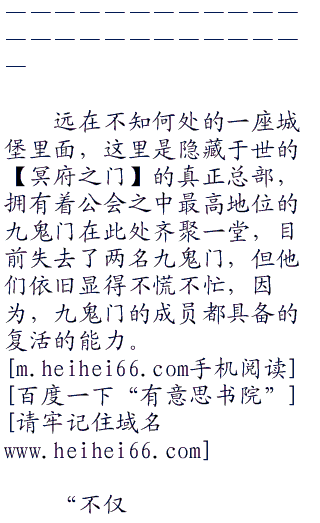 ————————————
————————————
—
远在不知何处的一座城
堡里面，这里是隐藏于世的
【冥府之门】的真正总部，
拥有着公会之中最高地位的
九鬼门在此处齐聚一堂，目
前失去了两名九鬼门，但他
们依旧显得不慌不忙，因
为，九鬼门的成员都具备的
复活的能力。
[m.heihei66.com手机阅读]
[百度一下“有意思书院”]
[请牢记住域名
www.heihei66.com]
“不仅